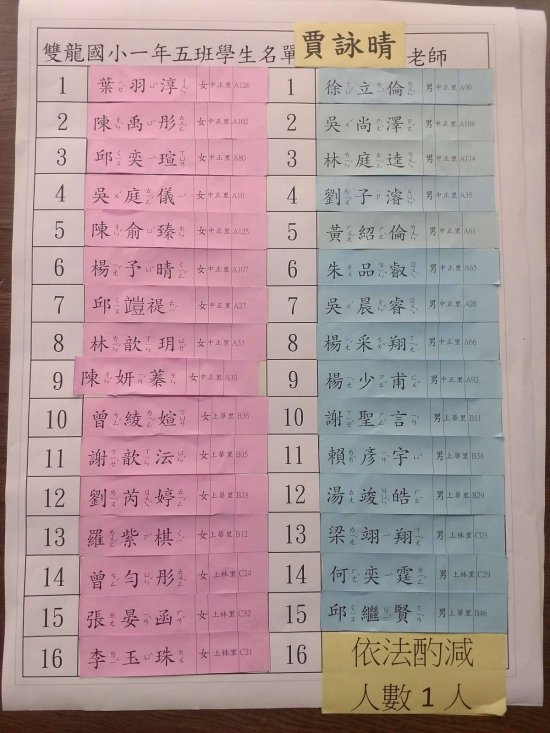 雙龍國小一年五班學生名單 賈詠晴 老師
1 葉羽淳 女 中正里 A126 1 徐立倫 男 中正里 A90
2 陳禹彤 女 中正里 A102 2 吳尚澤 男 中正里 A108
3 邱奕瑄 女 中正里 A80 3 林庭逵 男 中正里 A114
4 吳庭儀 女 中正里 A10 4 劉子濬 男 中正里 A35
5 陳俞臻 女 中正里 A125 5 黃紹倫 男 中正里 A61
6 楊予晴 女 中正里 A107 6 朱品叡 男 中正里 A65
7 邱塏禔 女 中正里 A27 7 吳晨睿 男 中正里 A28
8 林歆玥 女 中正里 A33 8 楊采翔 男 中正里 A66
9 陳妍蓁 女 中正里 A30 9 楊少甫 男 中正里 A92
10 曾綾媗 女 上華里 B36 10 謝聖言 男 上華里 B11
11 謝歆沄 女 上華里 B05 11 賴彥宇 男 上華里 B34
12 劉芮婷 女 上華里 B18 12 湯竣皓 男 上華里 B29
13 羅紫棋 女 上華里 B12 13 梁翊翔 男 上林里 C03
14 曾勻彤 女 上林里 C24 14 何奕霆 男 上林里 C29
15 張晏函 女 上林里 C32 15 邱繼賢 男 上華里 B46
16 李玉珠 女 上林里 C21 16 依法酌減
人數1人